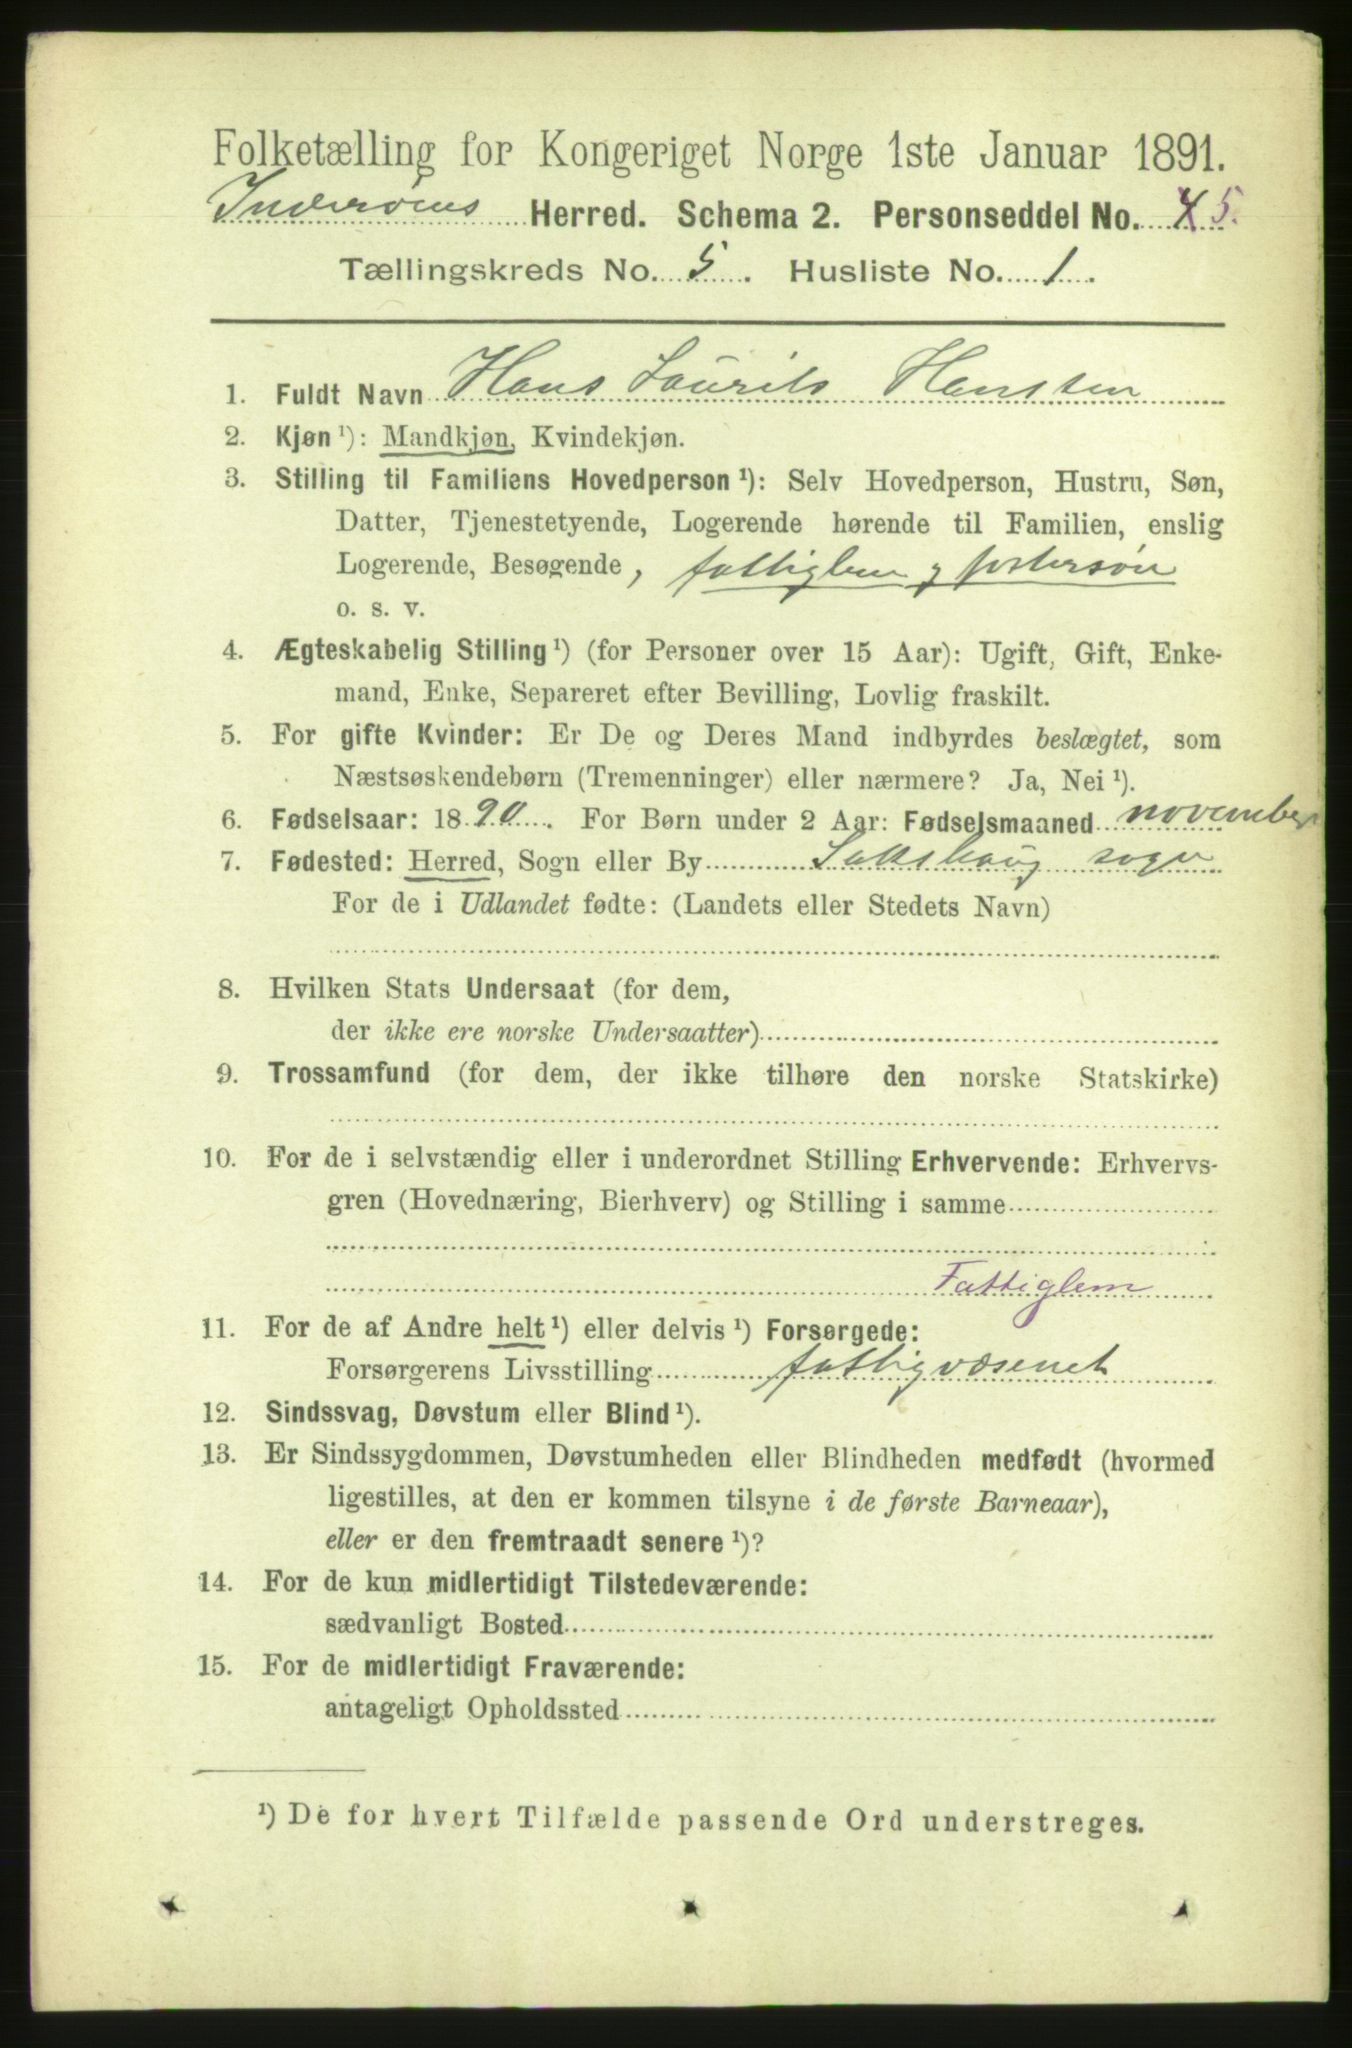 Folketælling for Kongeriget Norge 1ste Januar 1891.
Inderøens Herred. Schema 2. Personseddel No. 4 5.
Tællingskreds No. 5. Husliste No. 1.
1. Fuldt Navn Hans Laurits Hanssen
2. Kjøn ¹): Mandkjøn, Kvindekjøn.
3. Stilling til Familiens Hovedperson ¹): Selv Hovedperson, Hustru, Søn,
Datter, Tjenestetyende, Logerende hørende til Familien, enslig
Logerende, Besøgende, fattiglem og fostersøn
o. s. v.
4. Ægteskabelig Stilling ¹) (for Personer over 15 Aar): Ugift, Gift, Enke-
mand, Enke, Separeret efter Bevilling, Lovlig fraskilt.
5. For gifte Kvinder: Er De og Deres Mand indbyrdes beslægtet, som
Næstsøskendebørn (Tremenninger) eller nærmere? Ja, Nei ¹).
6. Fødselsaar: 1890. For Børn under 2 Aar: Fødselsmaaned november
7. Fødested: Herred, Sogn eller By Sakshaug sogn
For de i Udlandet fødte: (Landets eller Stedets Navn)
8. Hvilken Stats Undersaat (for dem,
der ikke ere norske Undersaatter)
9. Trossamfund (for dem, der ikke tilhøre den norske Statskirke)
10. For de i selvstændig eller i underordnet Stilling Erhvervende: Erhvervs-
gren (Hovednæring, Bierhverv) og Stilling i samme
Fattiglem
11. For de af Andre helt ¹) eller delvis ¹) Forsørgede:
Forsørgerens Livsstilling fattigvæsenet
12. Sindssvag, Døvstum eller Blind ¹).
13. Er Sindssygdommen, Døvstumheden eller Blindheden medfødt (hvormed
ligestilles, at den er kommen tilsyne i de første Barneaar),
eller er den fremtraadt senere ¹)?
14. For de kun midlertidigt Tilstedeværende:
sædvanligt Bosted
15. For de midlertidigt Fraværende:
antageligt Opholdssted
¹) De for hvert Tilfælde passende Ord understreges.